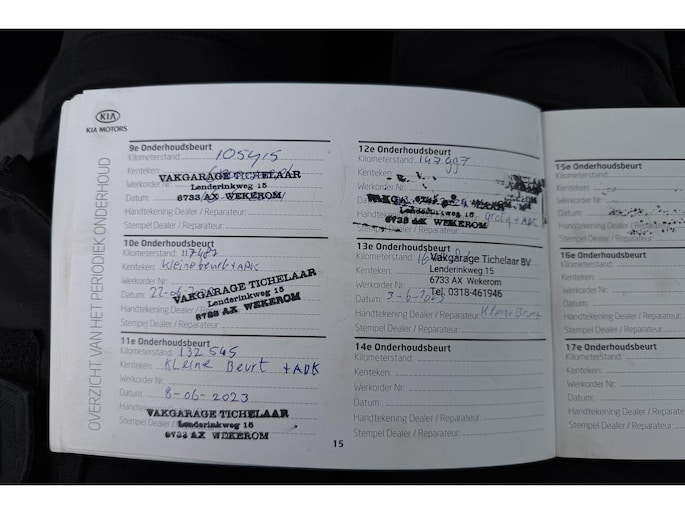 KIA
KIA MOTORS
OVERZICHT VAN HET PERIODIEK ONDERHOUD
9e Onderhoudsbeurt
Kilometerstand: 105415
Kenteken:
VAKGARAGE TICHELAAR
Werkorder Nr:
Lenderinkweg 15
Datum:
6733 AX WEKEROM
Handtekening Dealer / Reparateur:
Stempel Dealer / Reparateur:
10e Onderhoudsbeurt
Kilometerstand: 117487
Kenteken: Kleine beurt + APK
Werkorder Nr:
Datum: 22-06
VAKGARAGE TICHELAAR
Lenderinkweg 15
6733 AX WEKEROM
Handtekening Dealer / Reparateur:
Stempel Dealer / Reparateur:
11e Onderhoudsbeurt
Kilometerstand: 132545
Kenteken: KLeine Beurt + APK
Werkorder Nr:
Datum: 8-06-2023
Handtekening Dealer / Reparateur:
VAKGARAGE TICHELAAR
Stempel Dealer
Lenderinkweg 15
6733 AX WEKEROM
12e Onderhoudsbeurt
Kilometerstand: 147.997
Kenteken:
Werkorder Nr:
Datum:
Lenderinkweg 15
Handtekening Dealer / Reparateur: + APK
6733 AX WEKEROM
Stempel Dealer
13e Onderhoudsbeurt
Kilometerstand:
Vakgarage Tichelaar BV
Kenteken:
Lenderinkweg 15
Werkorder Nr:
6733 AX Wekerom
Datum: 3-6-
Tel. 0318-461946
Handtekening Dealer / Reparateur: Kleine Beurt
Stempel Dealer / Reparateur:
14e Onderhoudsbeurt
Kilometerstand:
Kenteken:
Werkorder Nr:
Datum:
Handtekening Dealer / Reparateur:
Stempel Dealer / Reparateur:
15
15e Onderhoudsbeurt
Kilometerstand:
Kenteken:
Werkorder Nr:
Datum:
Handtekening Dealer / Repara
Stempel Dealer / Reparateur:
16e Onderhoudsbeurt
Kilometerstand:
Kenteken:
Werkorder Nr:
Datum:
Handtekening Dealer / Re
Stempel Dealer / Reparateu
17e Onderhoudsbeurt
Kilometerstand:
Kenteken:
Werkorder Nr:
Datum:
Handtekening Dealer / R
Stempel Dealer / Reparat